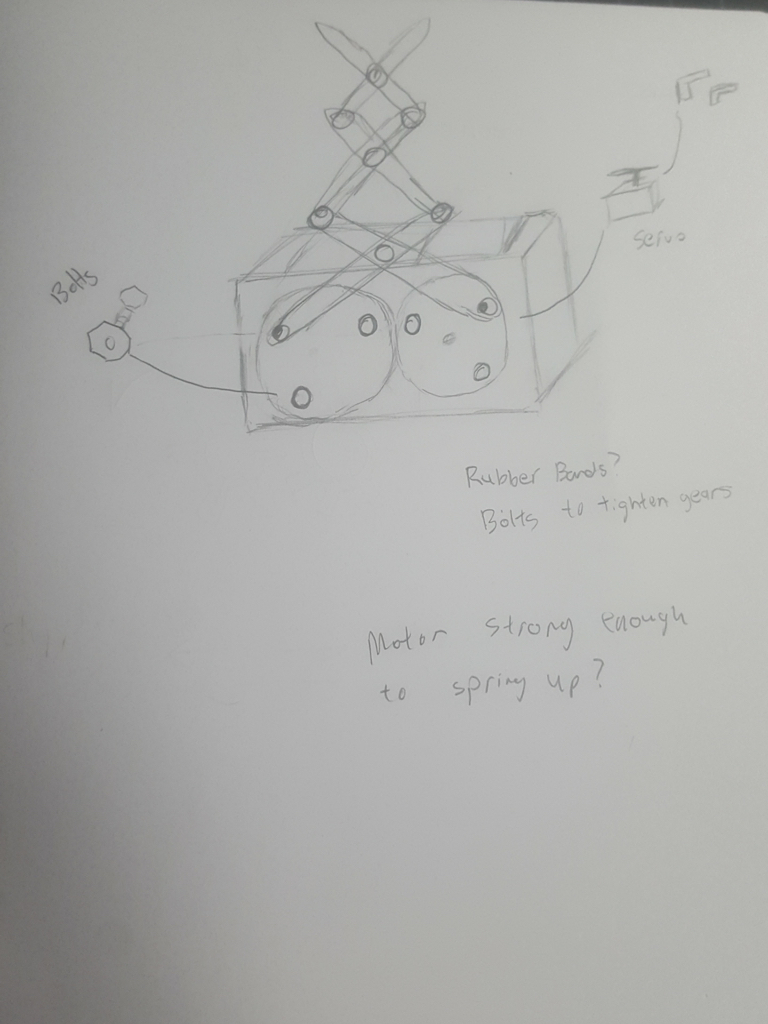 Bolts
Servo
Rubber Bands?
Bolts to tighten gears
Motor strong enough
to spring up?